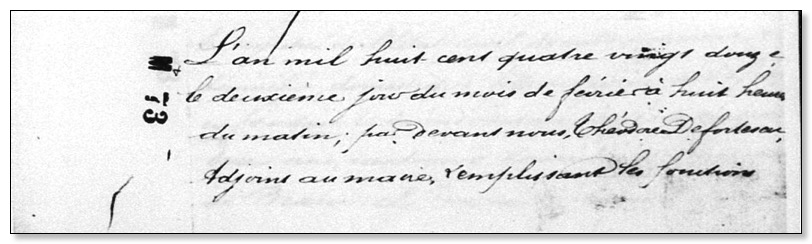 L'an mil huit cent quatre vingt douze
le deuxième jour du mois de février à huit heures
du matin, par devant nous, Théodore
Adjoint au maire, remplissant les fonctions